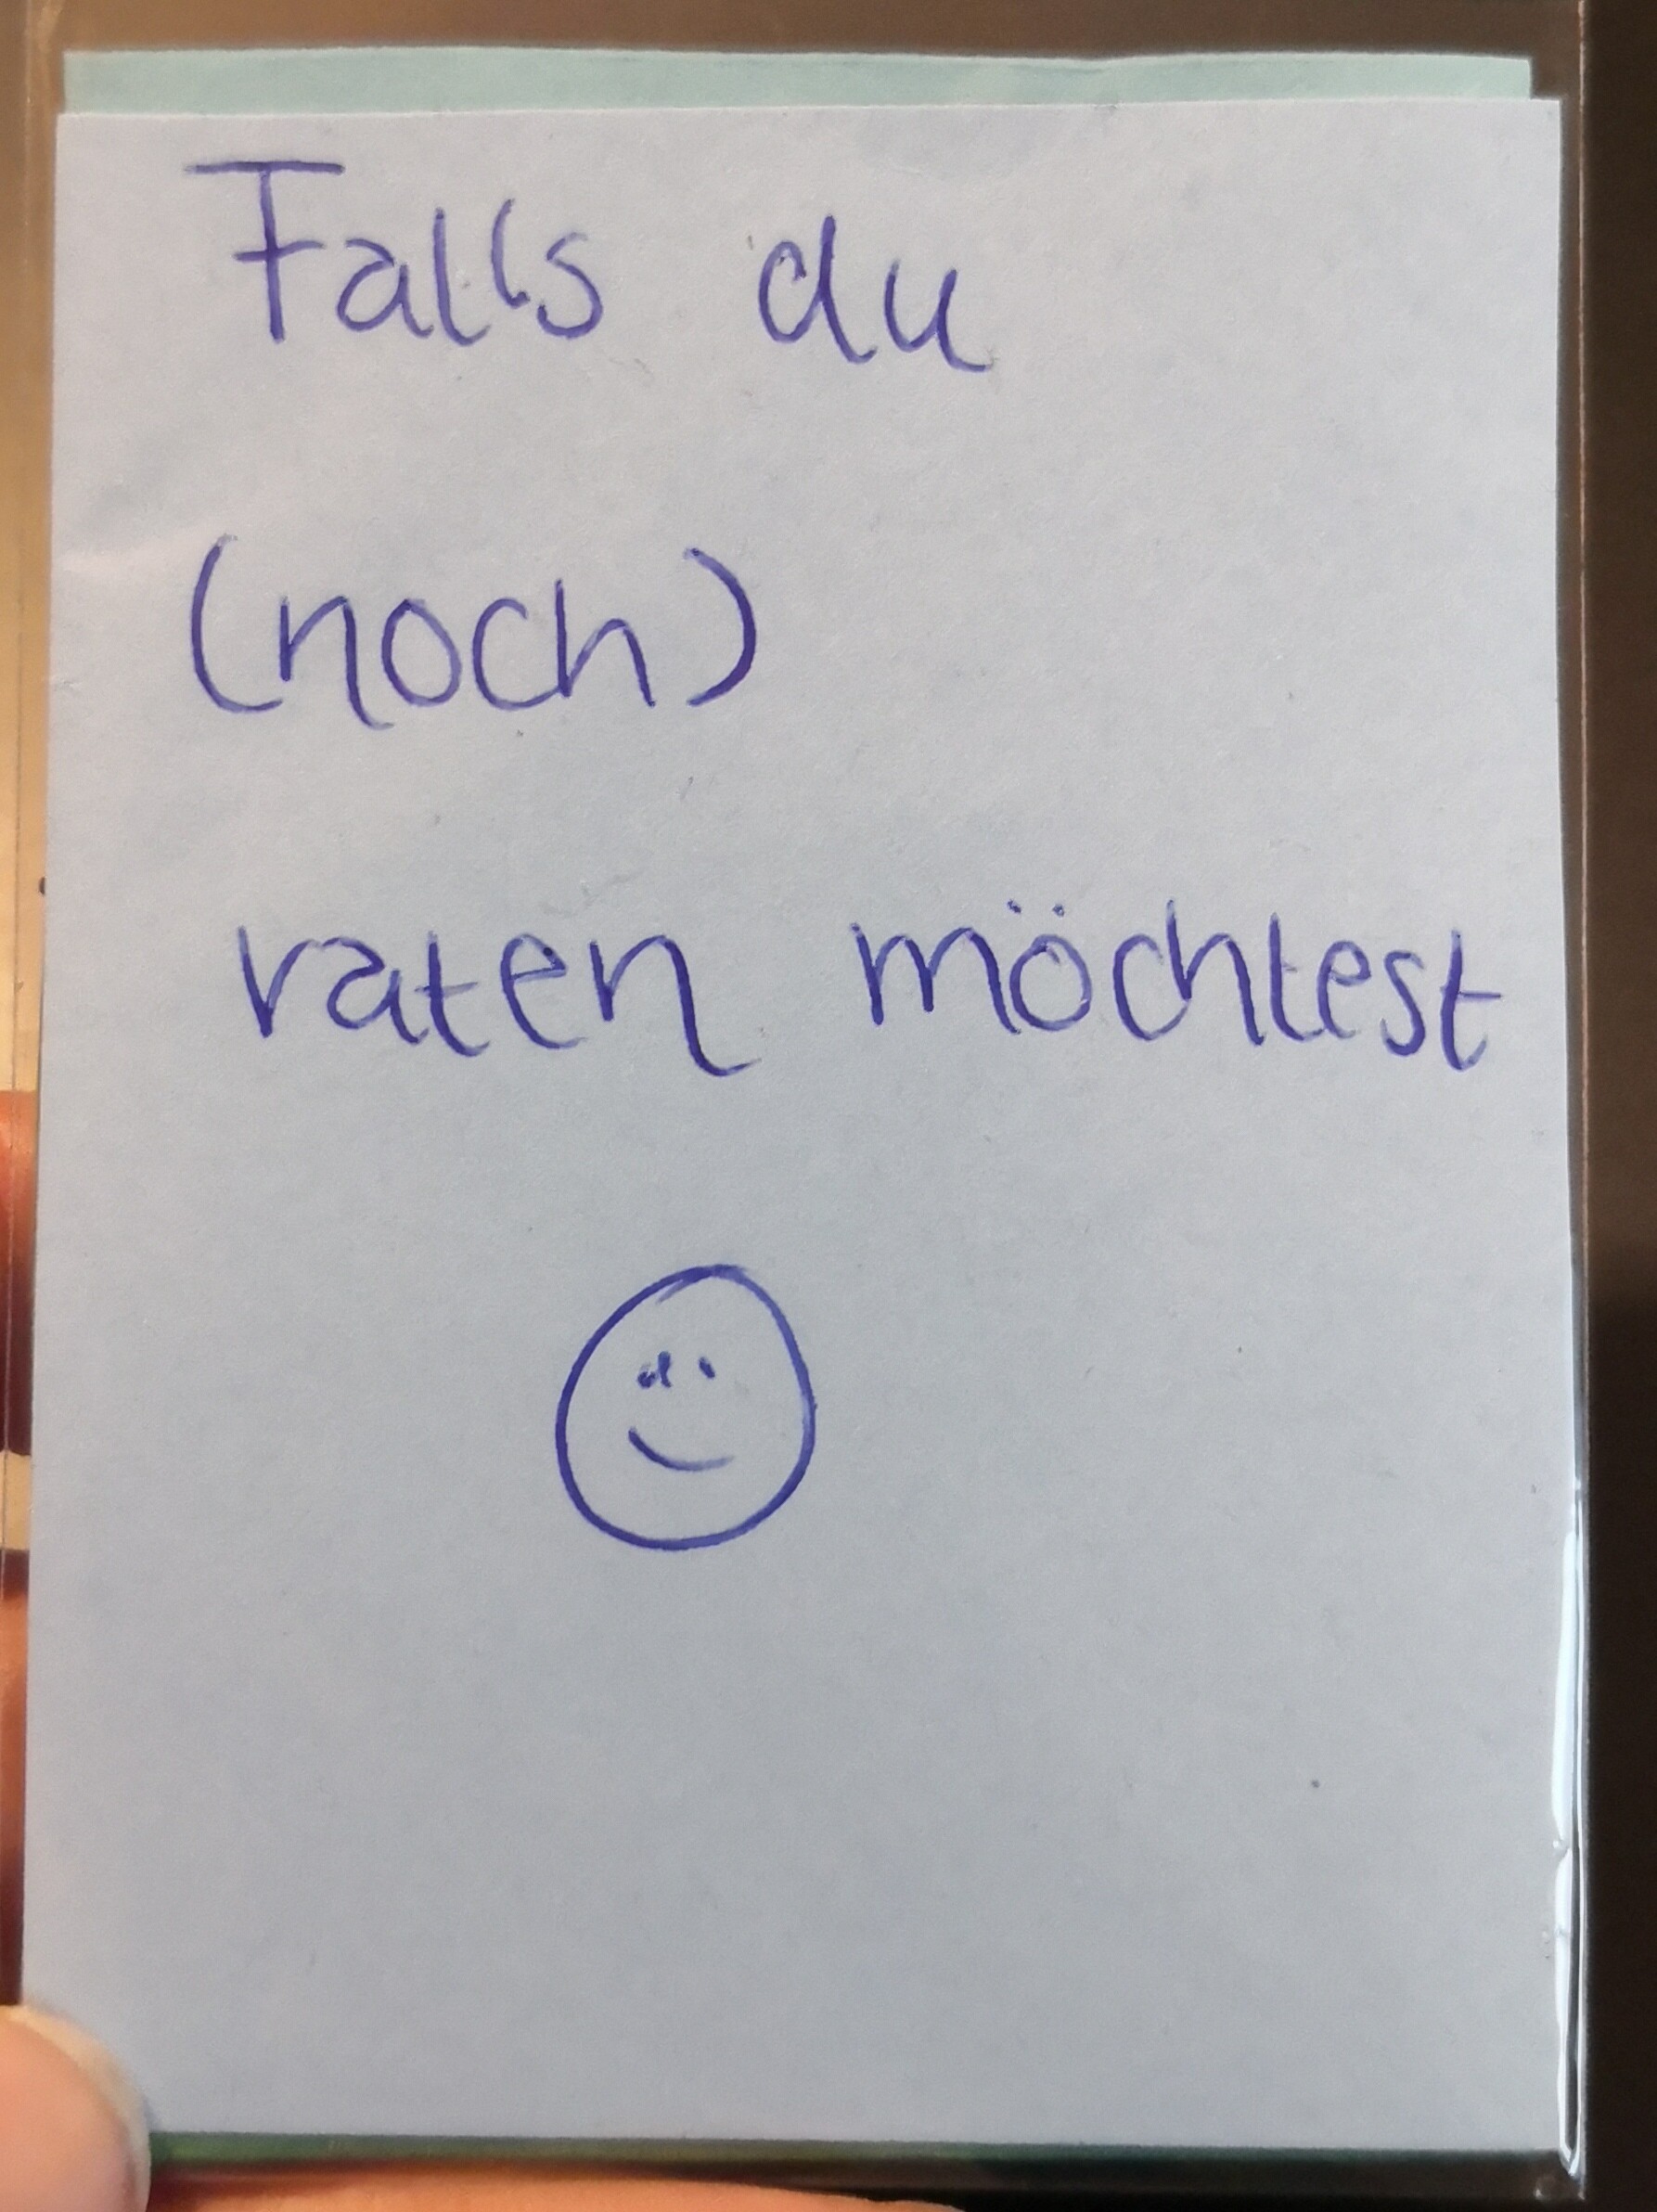 Falls du
(noch)
raten möchtest